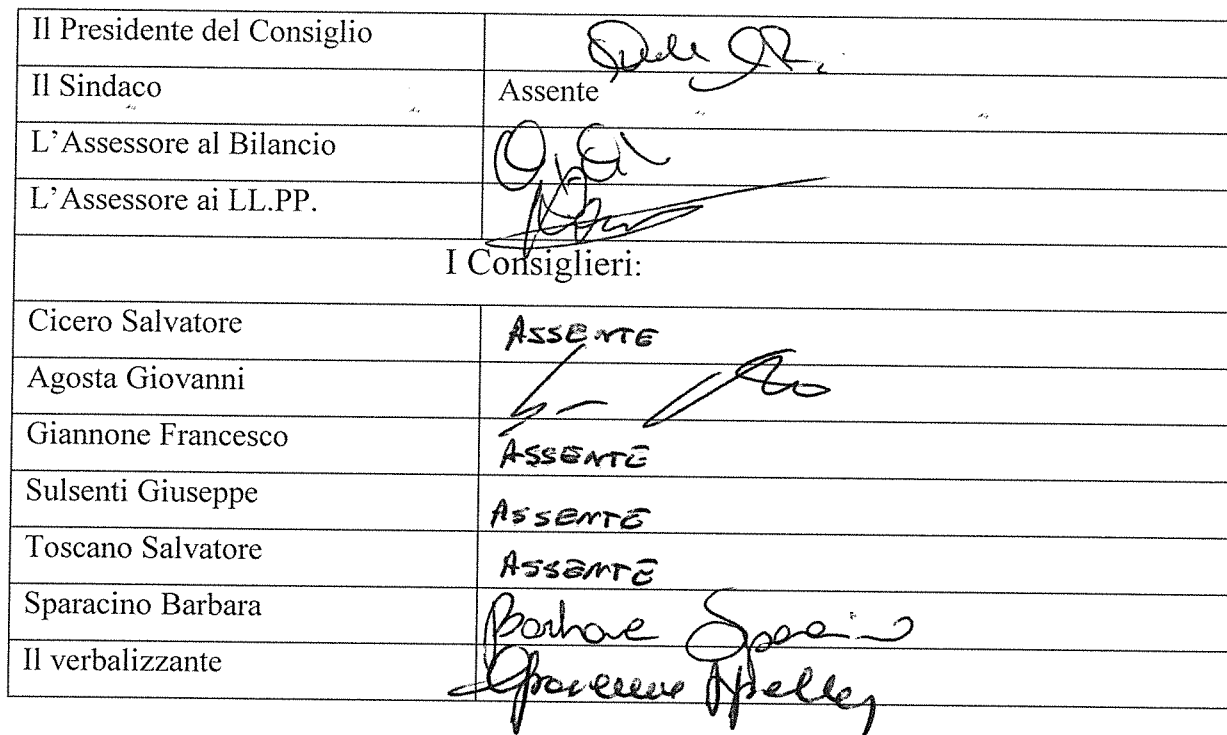 Il Presidente del Consiglio
Il Sindaco Assente
L'Assessore al Bilancio
L'Assessore ai LL.PP.
I Consiglieri:
Cicero Salvatore ASSENTE
Agosta Giovanni
Giannone Francesco ASSENTE
Sulsenti Giuseppe ASSENTE
Toscano Salvatore ASSENTE
Sparacino Barbara Barbara
Il verbalizzante